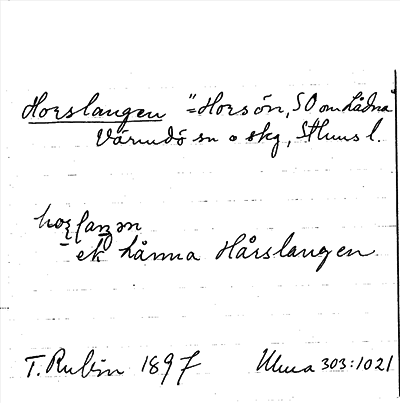 Horslangen "=Horsön, SO om Lådna"
Värmdö sn o skg, Sthms l.
ek Lånna Hårslangen
T. Rubin 1897 Ulma 303:1021